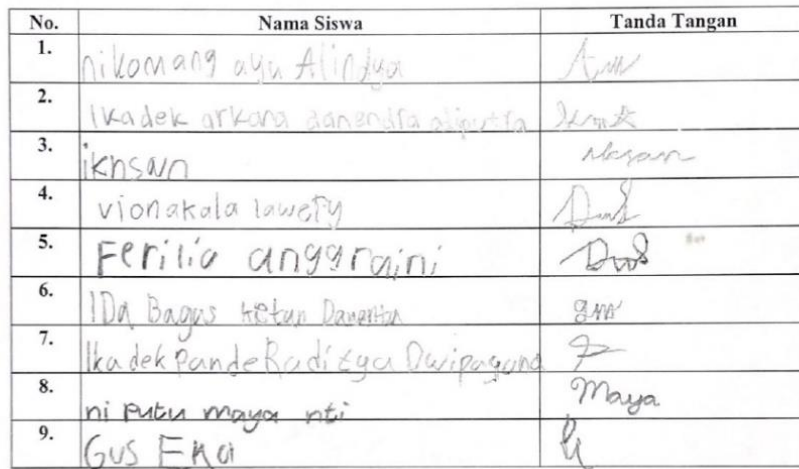 No. Nama Siswa Tanda Tangan
1. nikomang ayu Alindya
2. Ikadek arkana danendra adiputra
3. ikhsan
4. vionakala lawery
5. Ferilia anggraini
6. IDa Bagus ketun
7. Ikadek Pande Raditya Dwipayana
8. ni Putu maya nti Maya
9. Gus Eka